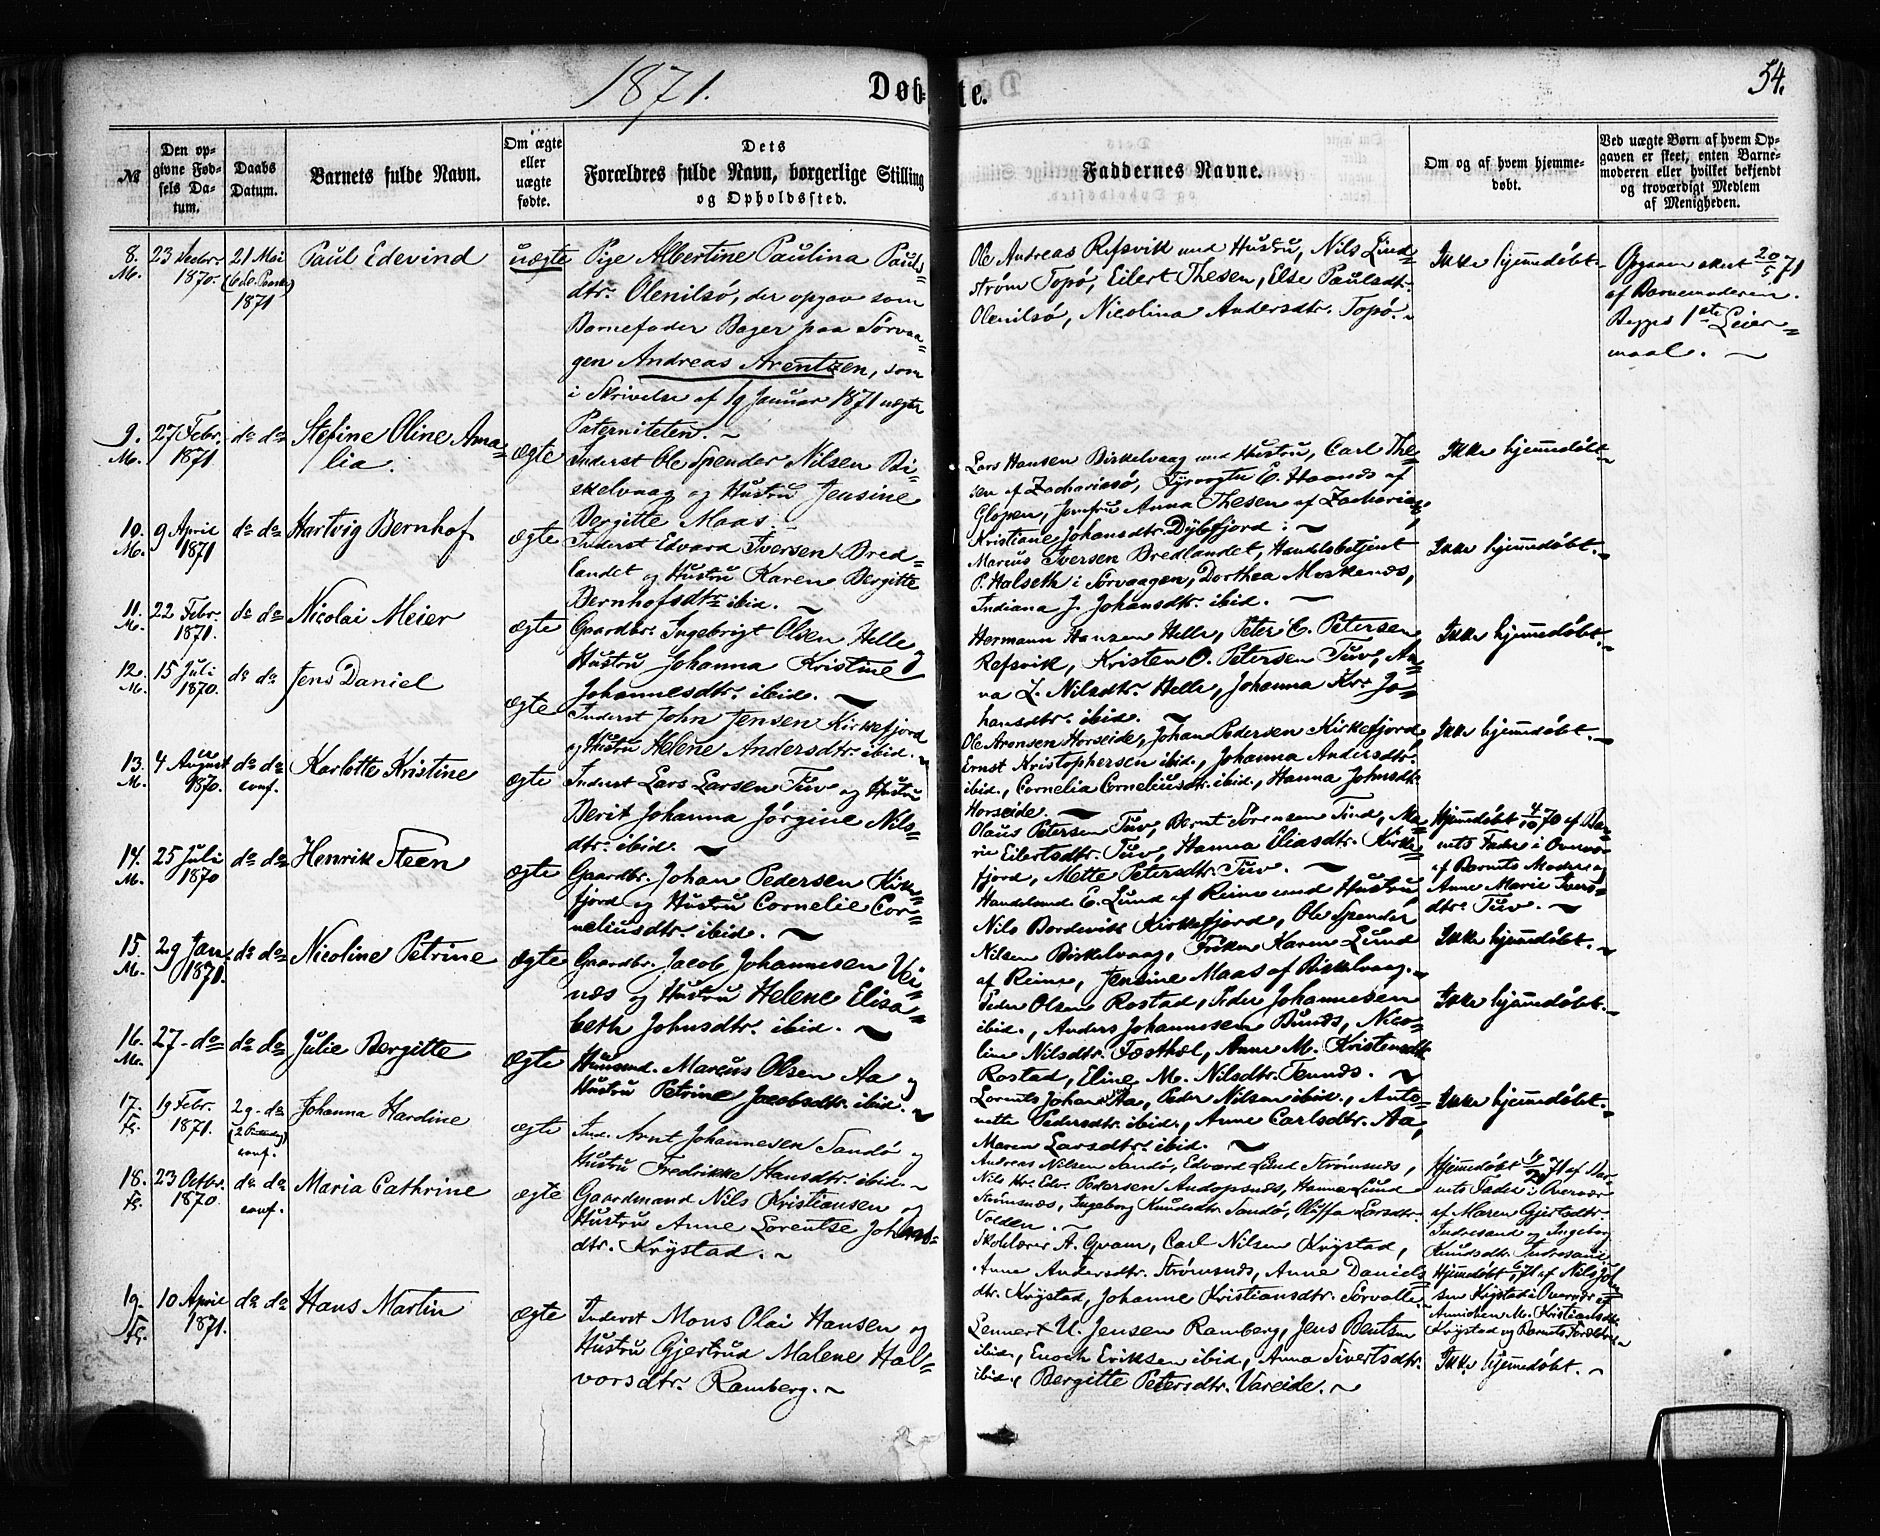 1871.
Døbte.
54.
№
Den opgivne Fødsels Datum.
Daabs Datum.
Barnets fulde Navn.
Om ægte eller uægte fødte.
Dets Forældres fulde Navn, borgerlige Stilling og Opholdssted.
Faddernes Navne.
Om og af hvem hjemmedøbt.
Ved uægte Børn af hvem Opgaven er skeet, enten Barnemoderen eller hvilket bekjendt og troværdigt Medlem af Menigheden.
8. M.
23 Decbr. 1870.
21 Mai 1871
Paul Edevind
uægte
Pige Albertine Paulina Pauls=
dtr. Olenilsö, der opgav som
Barnefader Bager paa Sörvaa=
gen Andreas Arentzen, som
i Skrivelse af 19 Januar 1871 nægter
Paterniteten.
Ole Andreas Refsvik med Hustru, Nils Lind=
ström Topö, Eilert Thesen, Else Paulsdtr.
Olenilsö, Nicolina Andersdtr. Topö.
Ikke hjemmedøbt.
Opgaven skeet 20/5 71
af Barnemoderen.
Begges 1ste Leier=
maal.
9. M.
27 Febr. 1871
do do
Stefine Oline Ama=
lia.
ægte
Inderst Ole Spender Nilsen Bi=
skelvaag og Hustru Jensine
Bergitte Maas.
Lars Hansen Birkelvaag med Hustru, Carl The=
sen af Zachariasö, Fyrvogter E. Haanæs af
Glopen, Jomfru Anna Thesen af Zacharias
Kristiane Johansdtr. Dybfjord.
Ikke hjemmedøbt.
10. M.
9 April 1871
do do
Hartvig Bernhof
ægte
Inderst Edvard Iversen Bred=
landet og Hustru Karen Bergitte
Bernhofsdtr ibid.
Marcus Iversen Bredlandet, Handelsbetjent
P. Halseth i Sörvaagen, Dorthea Moskenæs,
Indiana J. Johansdtr. ibid.
Ikke hjemmedøbt.
11. M.
22 Febr. 1871.
do do
Nicolai Meier
ægte
Gaardbr. Ingebrigt Olsen Helle og
Hustru Johanna Kristine
Johannesdtr. ibid.
Hermann Hansen Helle, Peter C. Petersen
Refsvik, Kristen O. Petersen Tuv, An=
na L. Nilsdtr. Helle, Johanna Kr. Jo=
hansdtr. ibid.
Ikke hjemmedøbt.
12. M.
15 Juli 1870.
do do
Jens Daniel
ægte
Inderst John Jensen Kirkefjord
og Hustru Helene Andersdtr. ibid.
Ole Aronsen Horseide, Johan Pedersen Kirkefjord,
Ernst Kristophersen ibid., Johanna Andersdtr.
ibid., Cornelia Corneliusdtr. ibid., Hanna Johnsdtr.
Horseide.
Ikke hjemmedøbt.
13. M.
4 August 1870.
do do conf.
Karlotte Kristine
ægte
Inderst Lars Larsen Tuv og Hustru
Berit Johanna Jörgine Nils=
dtr. ibid.
Olaus Petersen Tuv, Bernt Sörensen Tind, Ma=
rie Eilertsdtr. Tuv, Hanna Eliasdtr. Kirke=
fjord, Mette Petersdtr. Tuv.
Hjemmedøbt 4/10 70 af Bar=
nets Fader i Overvær
af Barnets Moder og
Anne Marie Ivers=
dtr. Tuv.
14. M.
25 Juli 1870
do do
Henrik Steen
ægte
Gaardbr. Johan Pedersen Kirk=
fjord og Hustru Cornelie Cor=
neliusdtr. ibid.
Handelsmd. E. Lund af Reine med Hustru,
Nils Bordevik Kirkefjord, Ole Spender
Nilsen Birkelvaag, Fröken Karen Lund
af Reine, Jensine Maas af Birkelvaag.
Ikke hjemmedøbt.
15. M.
29 Jan. 1871.
do do
Nicoline Petrine
ægte
Gaardbr. Jacob Johannesen Vei=
næs og Hustru Helene Elisa=
beth Johnsdtr. ibid.
Peder Olsen Rostad, Peder Johannesen
ibid., Anders Johannesen Bunæs, Nico=
line Nilsdtr. Fæsthæl, Anne M. Kristensdtr.
Rostad, Eline M. Nilsdtr. Tennæs.
Ikke hjemmedøbt.
16. M.
27 - do
do do
Julie Bergitte
ægte
Huusmd. Marcus Olsen Aa og
Hustru Petrine Jacobsdtr. ibid.
Lorents Johansen Aa, Peder Nilsen ibid., Anto=
nette Pedersdtr. ibid., Anne Carlsdtr. Aa,
Maren Larsdtr. ibid.
Ikke hjemmedøbt.
17. Fl.
19 Febr. 1871.
29 - do (2 Pintsedag) conf.
Johanna Hardine
ægte
Ind. Arnt Johannesen Sandö og
Hustru Fredrikke Hansdtr. ibid.
Andreas Nilsen Sandö, Edvard Lund Strömsnæs,
Nils Kr. Edv. Pedersen Andopsnæs, Hanna Lund
Strömsnæs, Ingeborg Knudsdtr. Sandö, Oliffa Larsdtr.
Volden.
Hjemmedøbt 71 af Bar=
nets Fader i Overvær
af Maren Gjertsdtr.
Indresand og Ingeborg
Knudsdtr. Indresand.
18. Fl.
23 Octbr. 1870.
do do conf.
Maria Cathrine
ægte
Gaardmand Nils Kristiansen og
Hustru Anne Lorentse Johans=
dtr. Krystad.
Skolelærer A. Qvam, Carl Nilsen Krystad,
Anne Andersdtr. Strömsnæs, Anne Daniels=
dtr. Krystad, Johanne Kristiansdtr. Sörvalle.
Hjemmedøbt 71 af Nils Joh
sen Krystad i Overvær af
Annichen M. Kristiansdtr.
Krystad og Barnets Forældre.
19. Fl.
10 April 1871.
do do
Hans Martin
ægte
Inderst Mons Olai Hansen og
Hustru Gjertrud Malene Hal=
vorsdtr. Ramberg.
Lennert U. Jensen Ramberg, Jens Bentsen
ibid., Enoch Eriksen ibid., Anna Sivertsdtr.
ibid., Bergitte Petersdtr. Vareide.
Ikke hjemmedøbt.